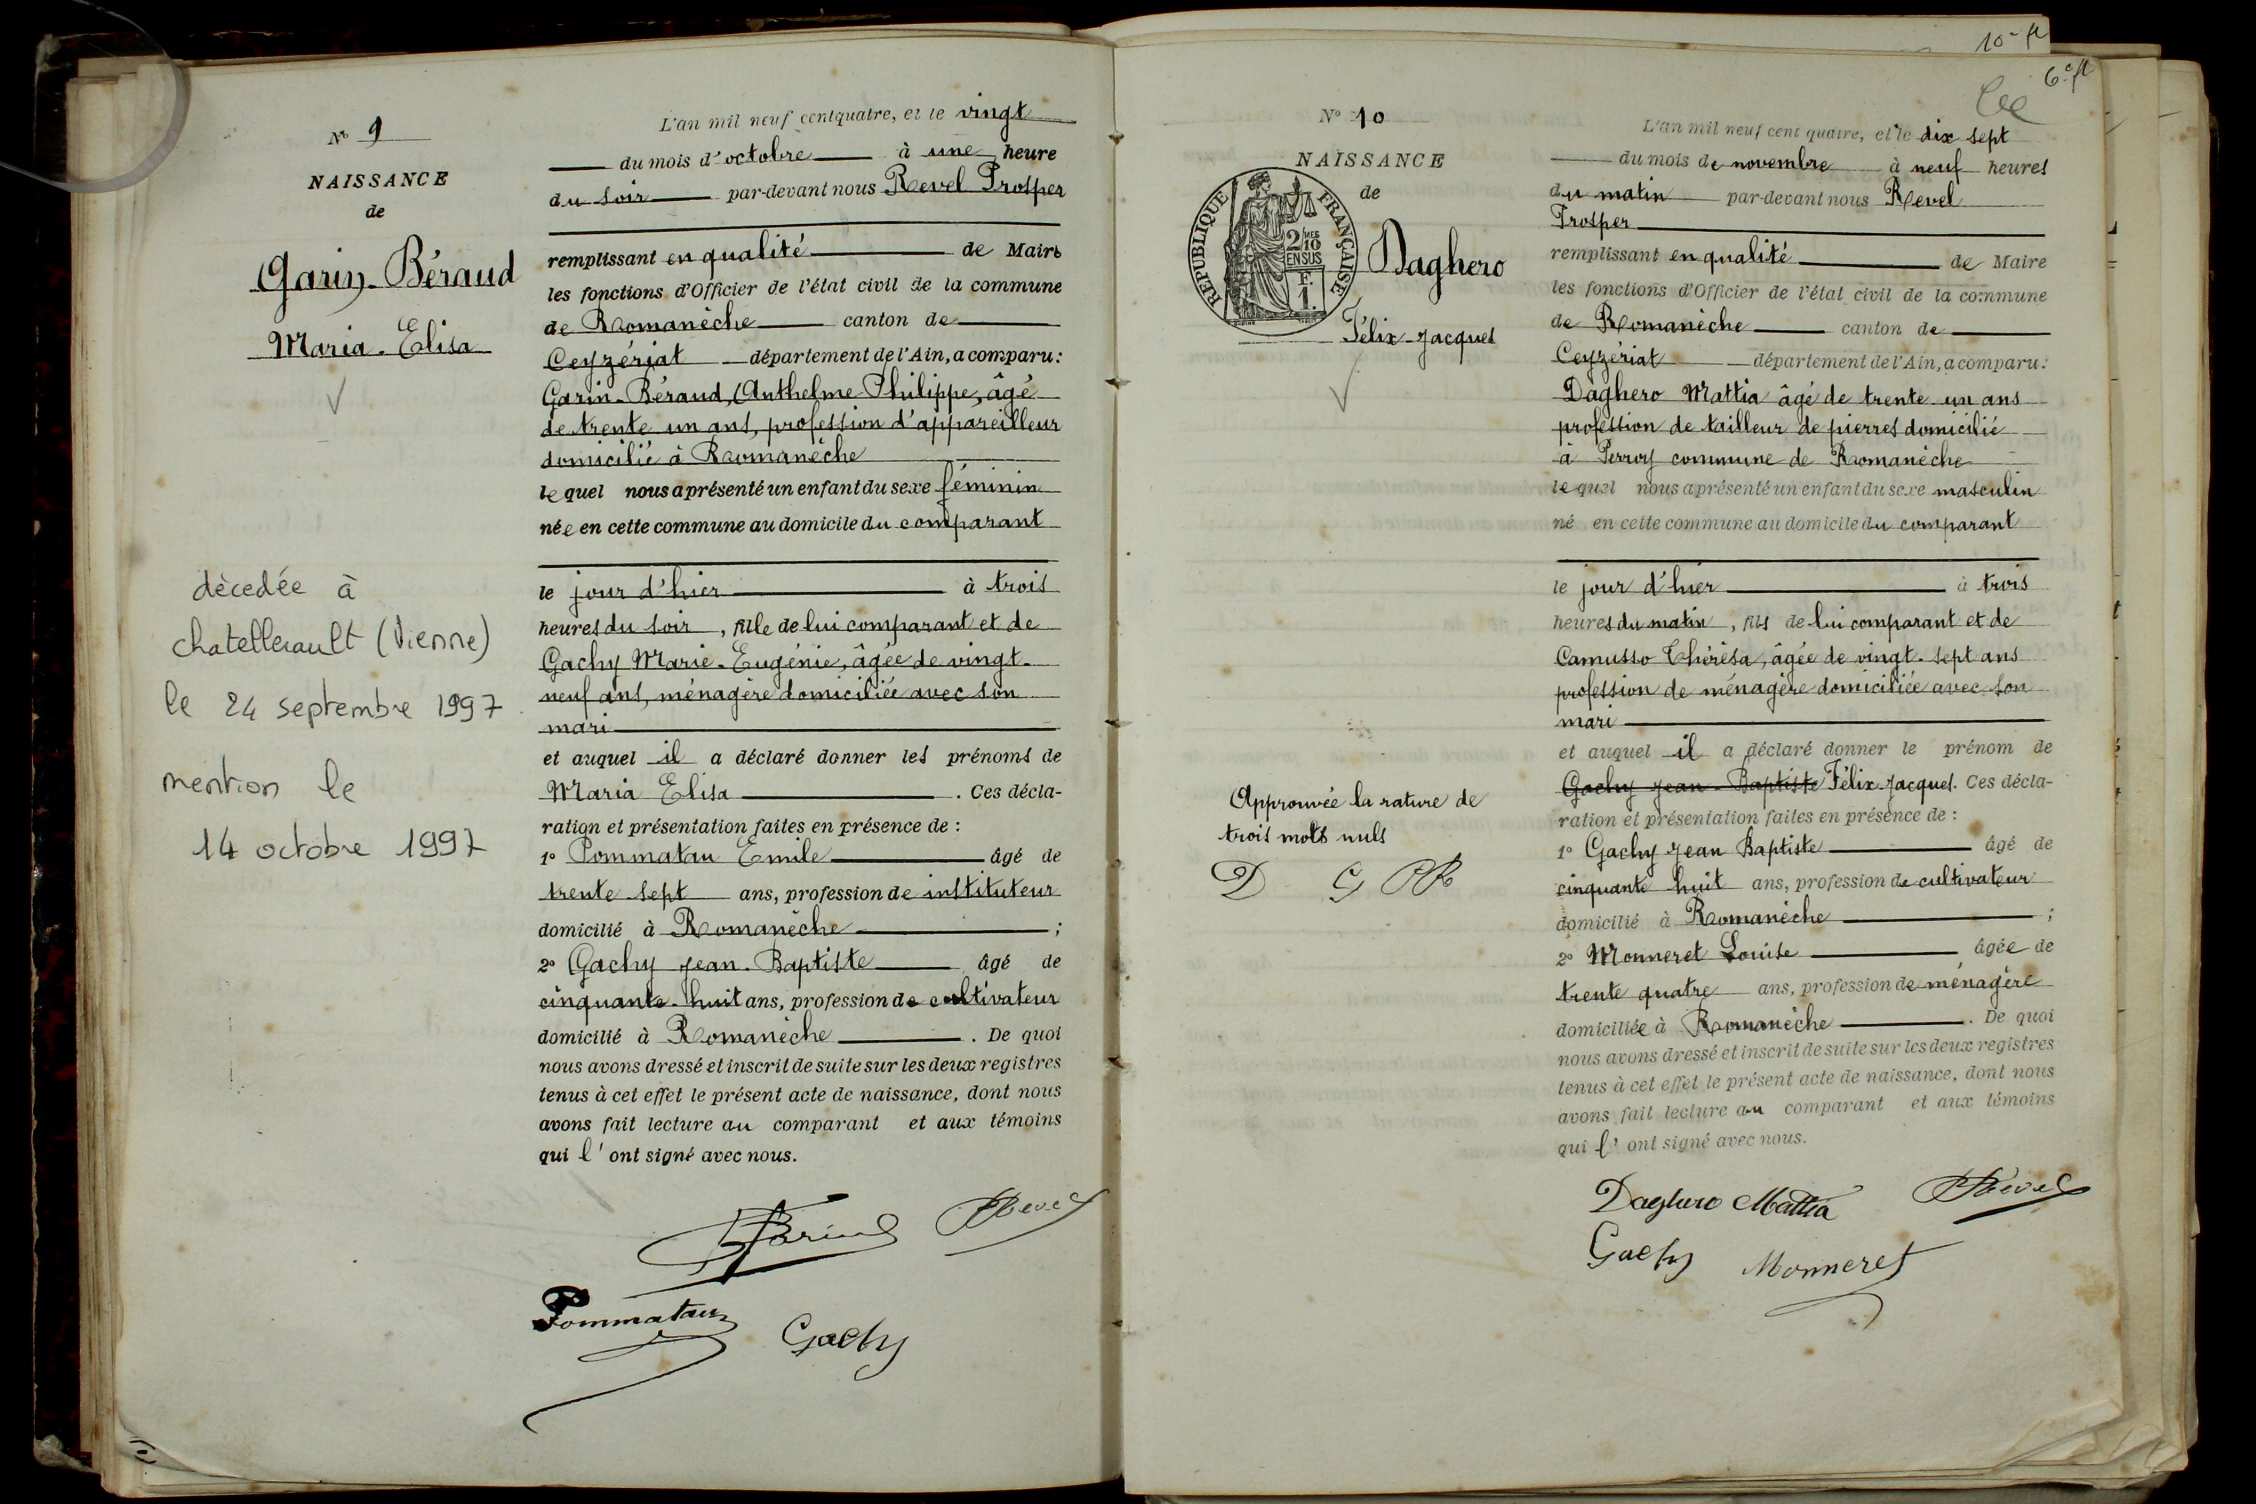 N° 9
NAISSANCE
de
Garin-Béraud
Maria-Elisa
décedée à
chatellerault (Vienne)
le 24 septembre 1997
mention le
14 octobre 1997
L'an mil neuf cent quatre, et le vingt
du mois d'octobre à une heure
du soir par-devant nous Revel Prosper
remplissant en qualité de Maire
les fonctions d'Officier de l'état civil de la commune
de Romanèche canton de
Ceyzériat département de l'Ain, a comparu:
Garin-Béraud, Anthelme Philippe, âgé
de trente un ans, profession d'appareilleur
domicilié à Romanèche
lequel nous a présenté un enfant du sexe féminin
née en cette commune au domicile du comparant
le jour d'hier à trois
heures du soir, fille de lui comparant et de
Gachy Marie-Eugénie, âgée de vingt-
neuf ans, ménagère domiciliée avec son
mari
et auquel il a déclaré donner les prénoms de
Maria Elisa. Ces décla-
ration et présentation faites en présence de :
1° Pommatau Emile âgé de
trente sept ans, profession de instituteur
domicilié à Romanèche ;
2° Gachy Jean-Baptiste âgé de
cinquante-huit ans, profession de cultivateur
domicilié à Romanèche. De quoi
nous avons dressé et inscrit de suite sur les deux registres
tenus à cet effet le présent acte de naissance, dont nous
avons fait lecture au comparant et aux témoins
qui l'ont signé avec nous.
PRevel
Pommatau
Gachy
10e ft
6e ft
N° 10
NAISSANCE
de
RÉPUBLIQUE FRANÇAISE
2/10 MES
EN SUS
F.
1.
Daghero
Félix-Jacques
Approuvée la rature de
trois mots nuls
D G PR
L'an mil neuf cent quatre, et le dix sept
du mois de novembre à neuf heures
du matin par-devant nous Revel
Prosper
remplissant en qualité de Maire
les fonctions d'Officier de l'état civil de la commune
de Romanèche canton de
Ceyzériat département de l'Ain, a comparu:
Daghero Mattia âgé de trente un ans
profession de tailleur de pierres domicilié
à Perroy commune de Romanèche
lequel nous a présenté un enfant du sexe masculin
né en cette commune au domicile du comparant
le jour d'hier à trois
heures du matin, fils de lui comparant et de
Camusso Thérésa, âgée de vingt-sept ans
profession de ménagère domiciliée avec son
mari
et auquel il a déclaré donner le prénom de
Gachy Jean-Baptiste Félix-Jacques. Ces décla-
ration et présentation faites en présence de :
1° Gachy Jean Baptiste âgé de
cinquante huit ans, profession de cultivateur
domicilié à Romanèche ;
2° Monneret Louise âgée de
trente quatre ans, profession de ménagère
domiciliée à Romanèche. De quoi
nous avons dressé et inscrit de suite sur les deux registres
tenus à cet effet le présent acte de naissance, dont nous
avons fait lecture au comparant et aux témoins
qui l'ont signé avec nous.
Daghero Mattia
PRevel
Gachy
Monneret